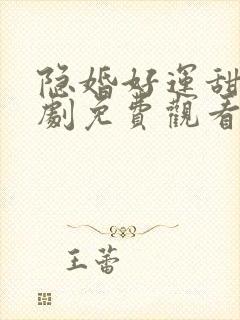 隐婚好運甜
劇免費觀看
王蕾